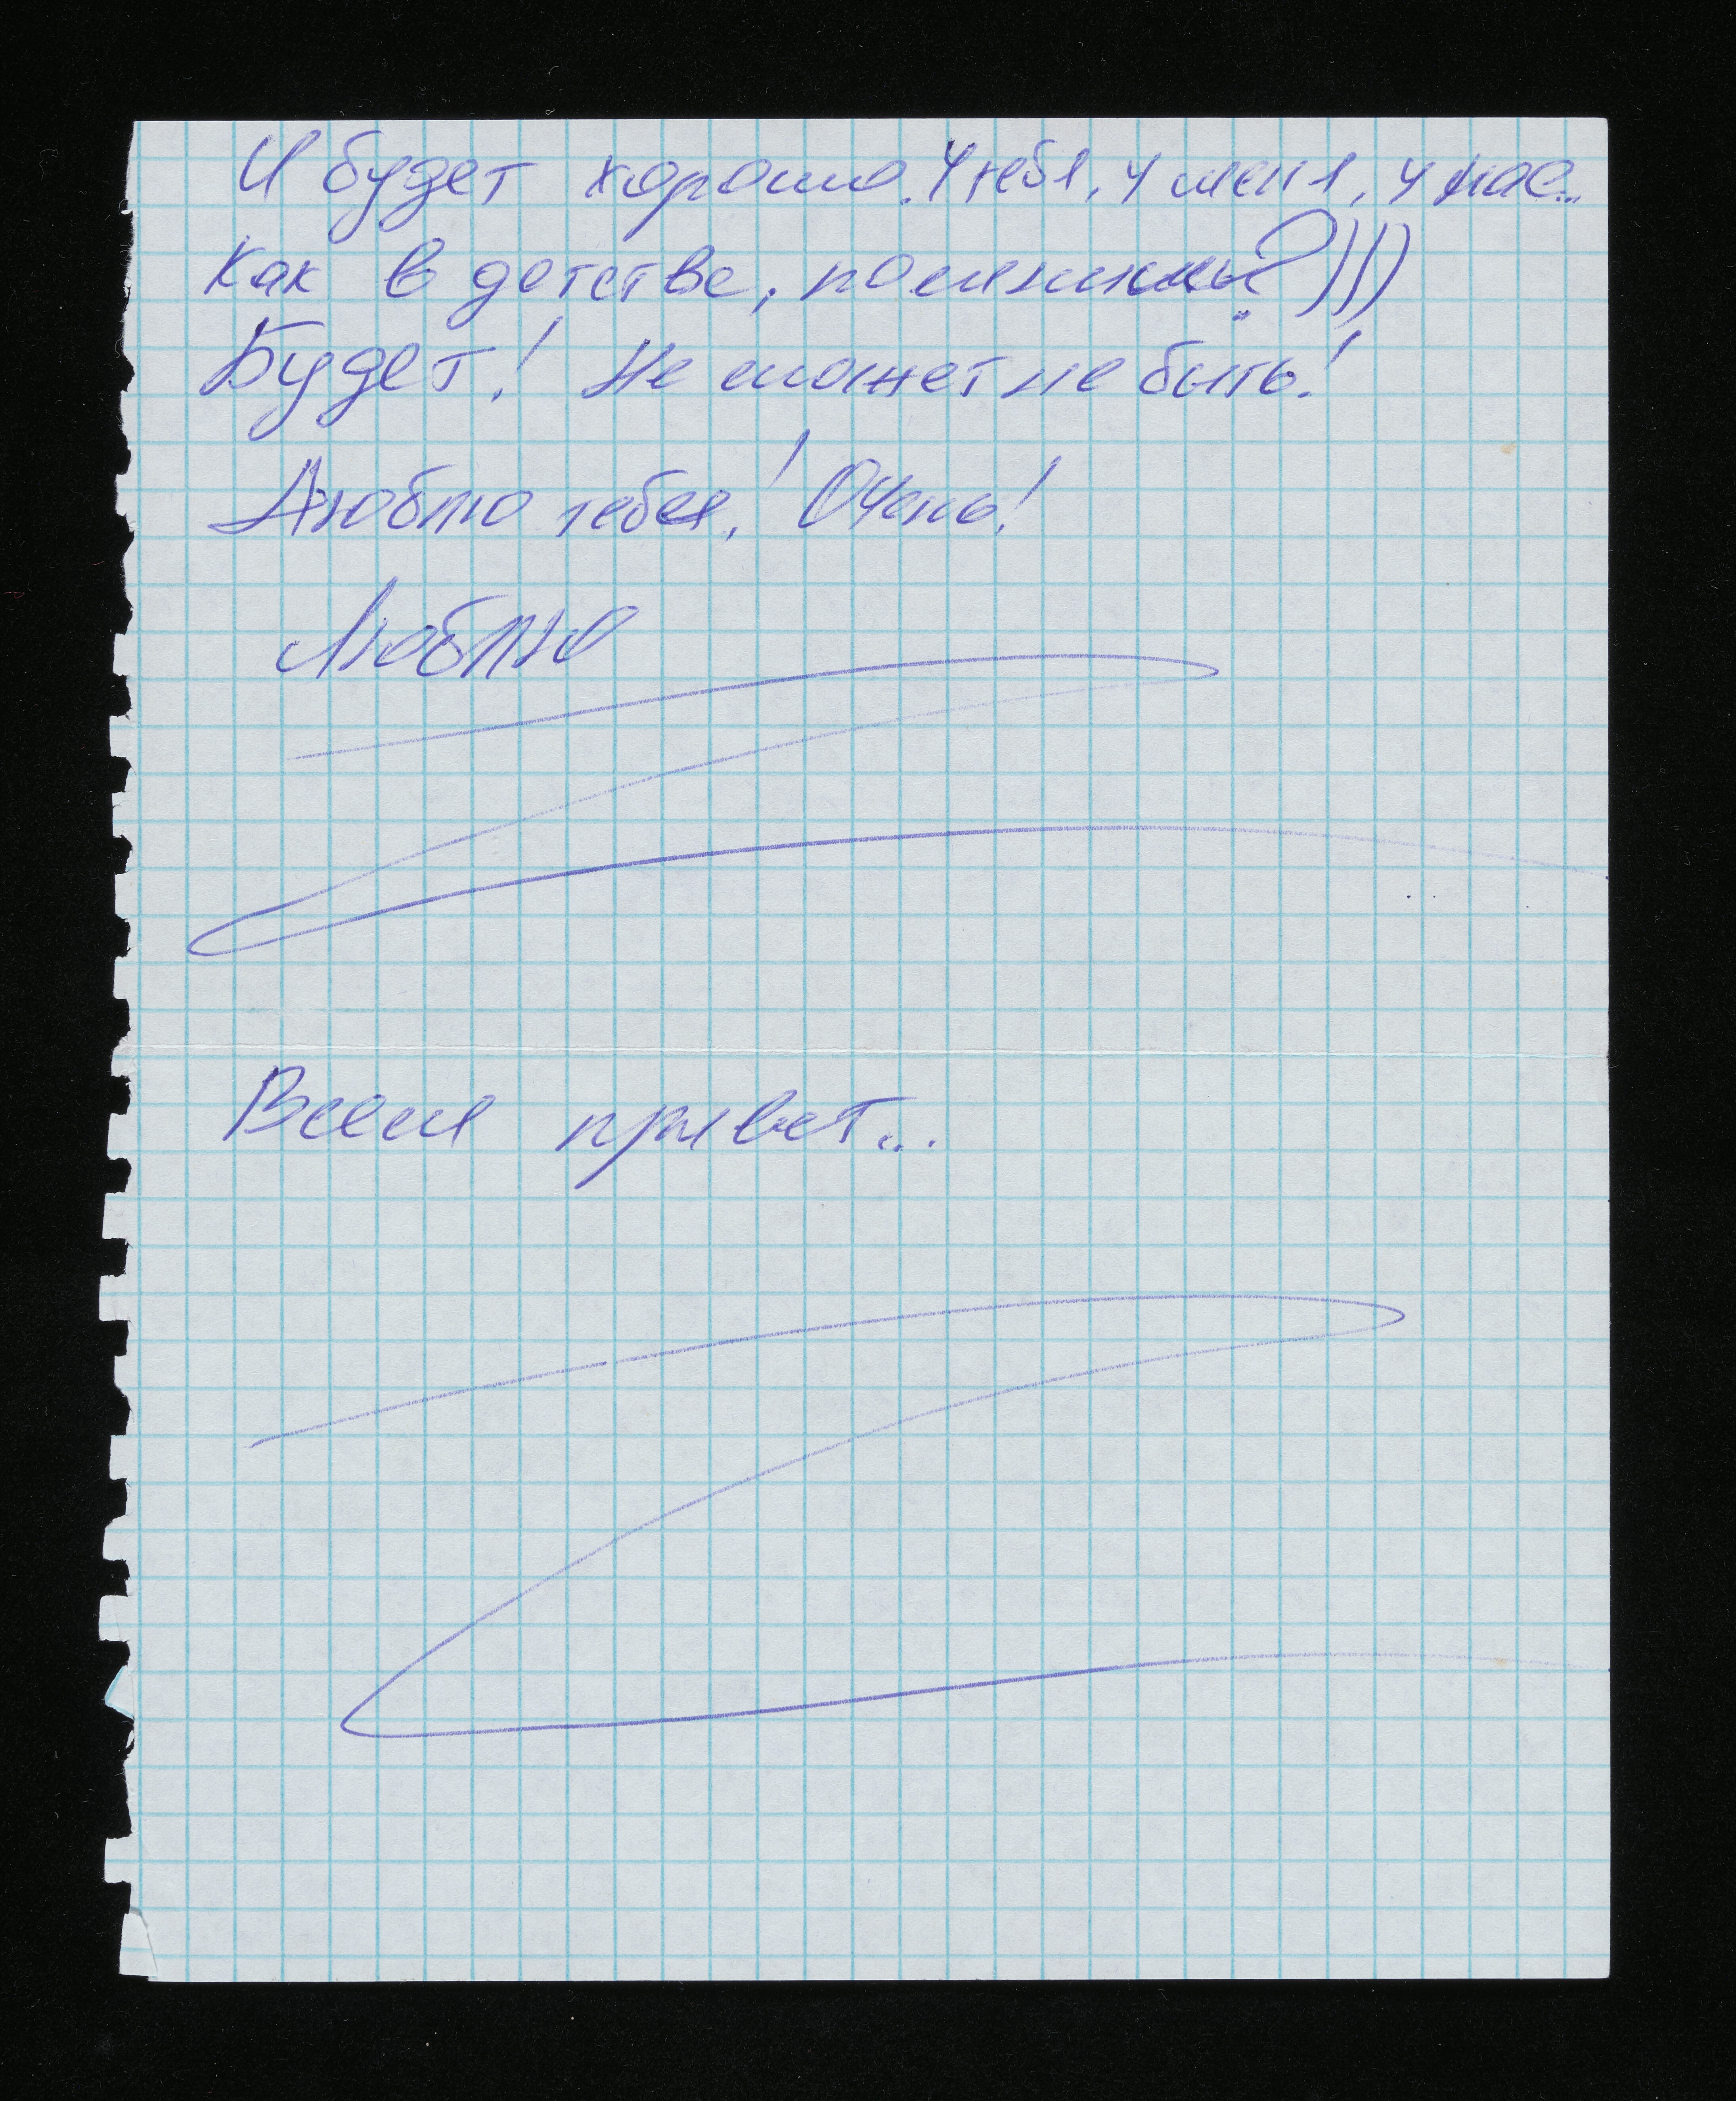 И будет хорошо. У тебя, у меня, у нас...
Как в детстве, помнишь?)))
Будет! Не может не быть!
Люблю тебя! Очень!
Люблю
Всем привет...